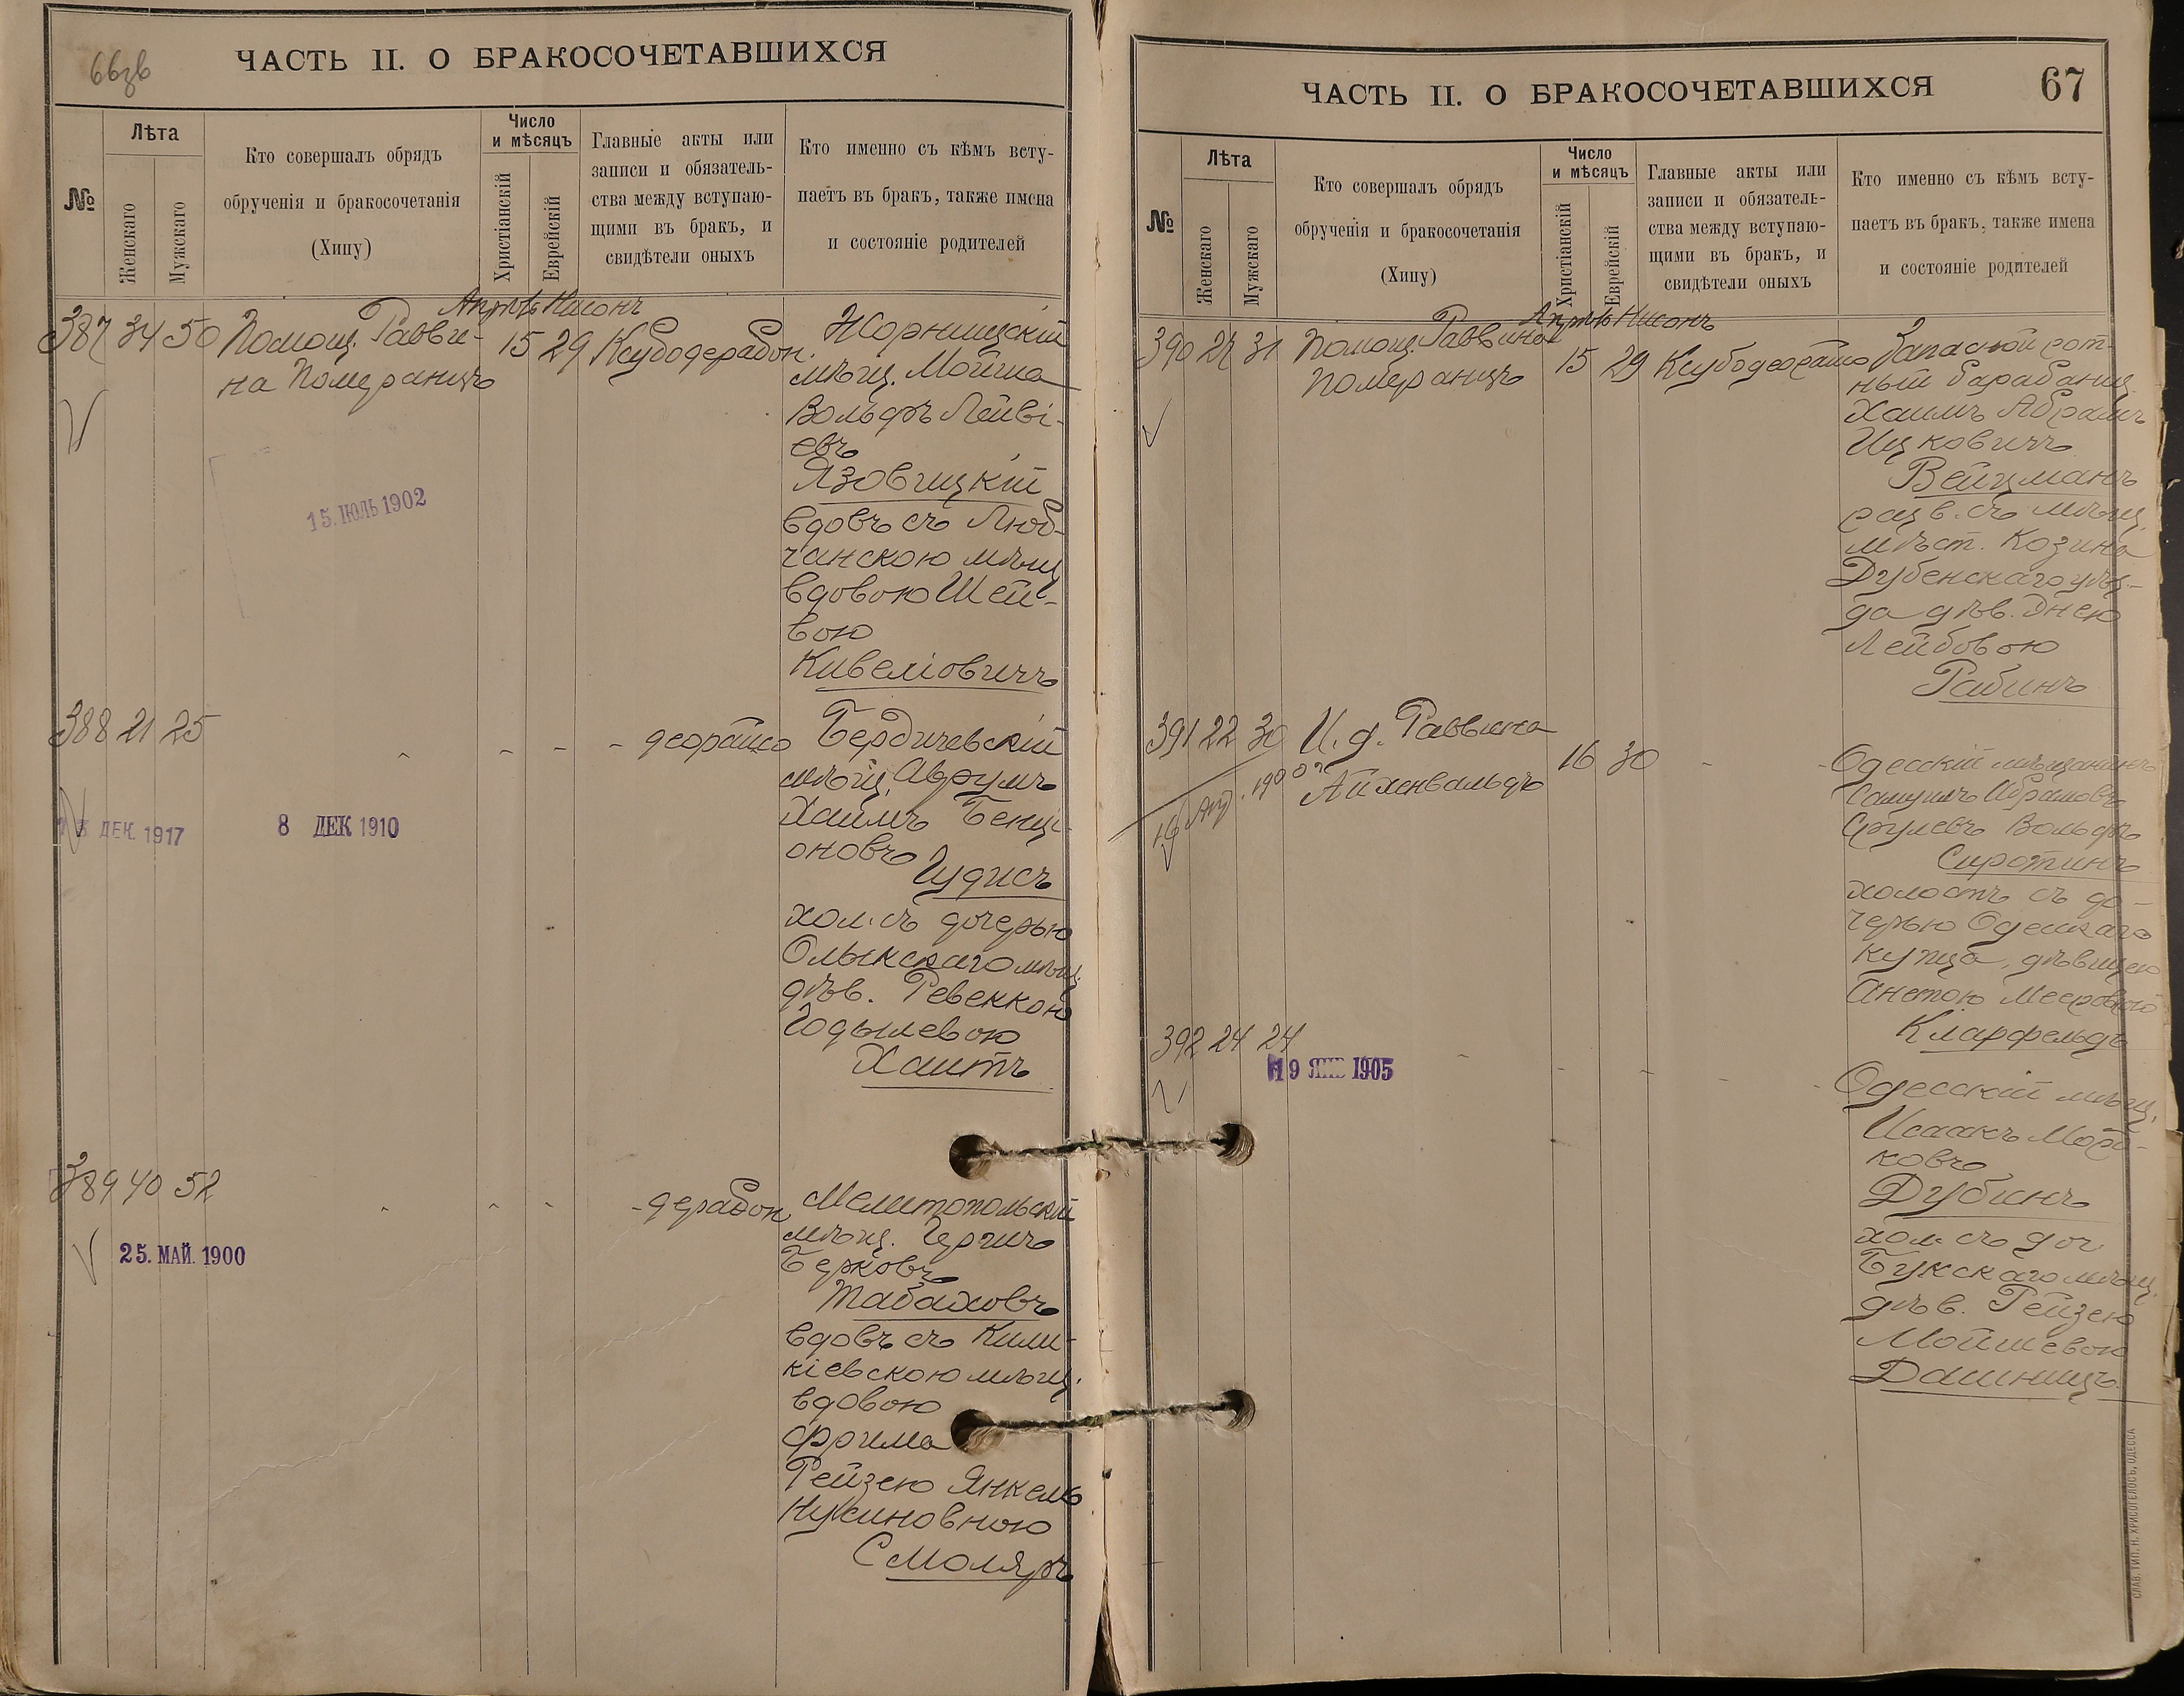 66зв
ЧАСТЬ II. О БРАКОСОЧЕТАВШИХСЯ
№
Лѣта
Женскаго
Мужскаго
Кто совершалъ обрядъ
обрученія и бракосочетанія
(Хипу)
Число
и мѣсяцъ
Христіанскій
Еврейскій
Главные акты или
записи и обязатель-
ства между вступаю-
щими въ бракъ, и
свидѣтели оныхъ
Кто именно съ кѣмъ всту-
паетъ въ бракъ, также имена
и состояніе родителей
Апрѣль Нисонъ
387 34 50 Помощ. Равви- 15 29 Ксубодерабон.
на Померанцъ
Жорнищскій
мѣщ. Мойша
Вольфъ Лейві-
евъ
Язовицкій
вдовъ съ Люб-
чанскою мѣщ
вдовою Шей-
вою
Кивеліовичъ
15. ІЮЛЬ 1902
388 21 25 - - - - деорайсо
Бердичевскій
мѣщ. Аврумъ
Хаимъ Бенці-
оновъ
Гудисъ
хол. съ дочерью
Олыкскаго мѣщ.
дѣв. Ревеккою
Годылевою
Хаитъ
ДЕК 1917
8 ДЕК 1910
389 40 52 - - - - дерабон
Мелитопольскій
мѣщ. Гершъ
Берковъ
Табаховъ
вдовъ съ Кили-
кіевскою мѣщ.
вдовою
Фрима
Рейзею Янкель
Нухиновною
Смоляръ
25. МАЙ. 1900
ЧАСТЬ II. О БРАКОСОЧЕТАВШИХСЯ
67
№
Лѣта
Женскаго
Мужскаго
Кто совершалъ обрядъ
обрученія и бракосочетанія
(Хипу)
Число
и мѣсяцъ
Христіанскій
Еврейскій
Главные акты или
записи и обязатель-
ства между вступаю-
щими въ бракъ, и
свидѣтели оныхъ
Кто именно съ кѣмъ всту-
паетъ въ бракъ, также имена
и состояніе родителей
Апрѣль Нисонъ
390 27 31 Помощ. Раввина 15 29 Ксубодеорайсо
Померанцъ
Запасной рот-
ный барабанщ.
Хаимъ Абрамъ
Ицковичъ
Вейцманъ
разв. съ мѣщ.
мѣст. Козина
Дубенскаго уѣз-
да дѣв. Энею
Лейбовою
Рабинъ
391 22 30 И. д. Раввина 16 30 - -
Айхенвальдъ
Одесскій мѣщанинъ
Самуилъ Абрамовъ
Срулевъ Вольфъ
Сиротинъ
холостъ съ до-
черью Одесскаго
купца, дѣвицею
Анетою Мееровною
Кларфельдъ
392 24 24 - - - - -
19 ЯНВ 1905
Одесскій мѣщ.
Исаакъ Морд-
ковъ
Дубинъ
хол. съ доч.
Букскаго мѣщ.
дѣв. Рейзею
Мойшевою
Дашницъ
СЛАВ. ТИП. Н. ХРИСОГЕЛОСЪ, ОДЕССА